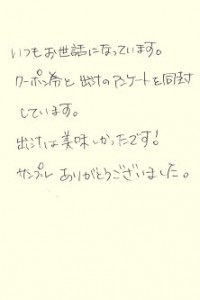 いつもお世話になっています。
クーポン券と出汁のアンケートを同封
しています。
出汁は美味しかったです!
サンプルありがとうございました。